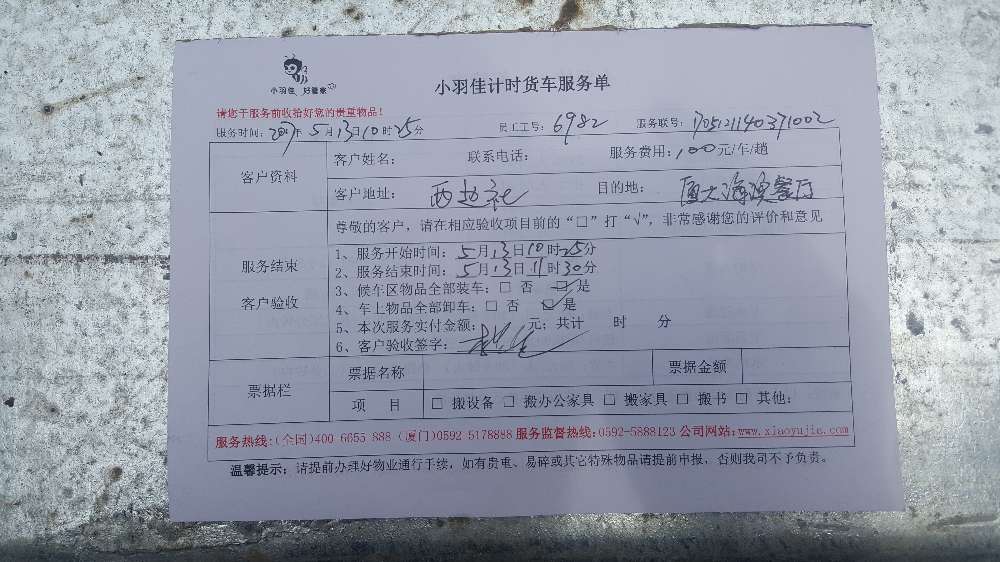 小羽佳 好管家
小羽佳计时货车服务单
请您于服务前收拾好您的贵重物品！
服务时间：2017年5月13日10时25分 员工工号：6982 服务联号：1705121140371002
客户资料
客户姓名： 联系电话： 服务费用：100元/车/趟
客户地址：西边社 目的地：厦大海滨餐厅
服务结束
客户验收
尊敬的客户，请在相应验收项目前的“□”打“√”，非常感谢您的评价和意见
1、服务开始时间：5月13日10时25分
2、服务结束时间：5月13日11时30分
3、候车区物品全部装车：□ 否 ☑是
4、车上物品全部卸车：□ 否 ☑是
5、本次服务实付金额： 元；共计 时 分
6、客户验收签字：
票据栏
票据名称 票据金额
项 目 □ 搬设备 □ 搬办公家具 □ 搬家具 □ 搬书 □ 其他：
服务热线：(全国)400 6655 888 (厦门)0592 5178888 服务监督热线：0592-5888123 公司网站：www.xiaoyujia.com
温馨提示：请提前办理好物业通行手续，如有贵重、易碎或其它特殊物品请提前申报，否则我司不予负责。